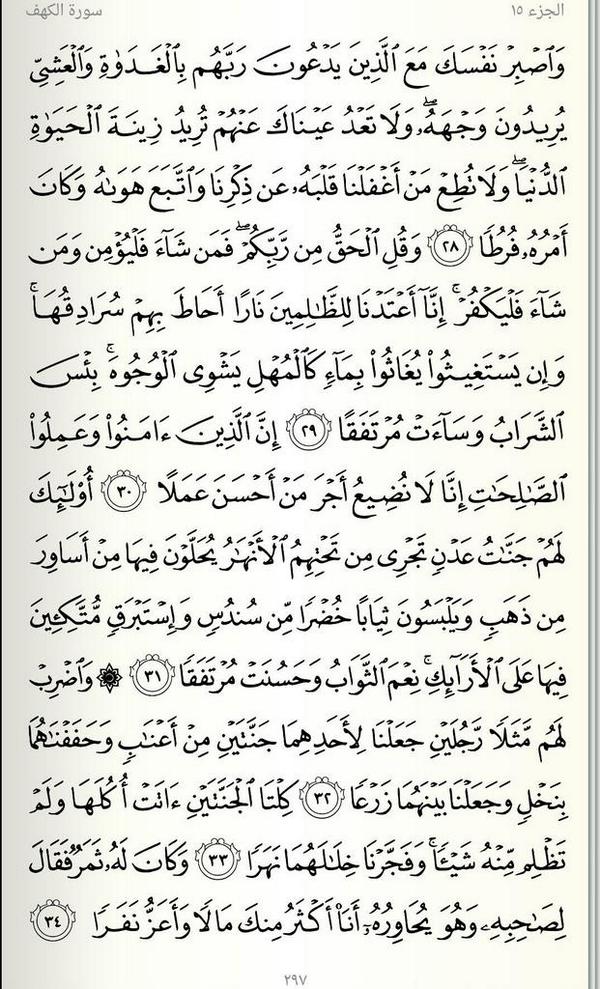 الجزء ١٥
سورة الكهف
وَٱصۡبِرۡ نَفۡسَكَ مَعَ ٱلَّذِينَ يَدۡعُونَ رَبَّهُم بِٱلۡغَدَوٰةِ وَٱلۡعَشِيِّ
يُرِيدُونَ وَجۡهَهُۥۖ وَلَا تَعۡدُ عَيۡنَاكَ عَنۡهُمۡ تُرِيدُ زِينَةَ ٱلۡحَيَوٰةِ
ٱلدُّنۡيَاۖ وَلَا تُطِعۡ مَنۡ أَغۡفَلۡنَا قَلۡبَهُۥ عَن ذِكۡرِنَا وَٱتَّبَعَ هَوَىٰهُ وَكَانَ
أَمۡرُهُۥ فُرُطٗا ٢٨ وَقُلِ ٱلۡحَقُّ مِن رَّبِّكُمۡۖ فَمَن شَآءَ فَلۡيُؤۡمِن وَمَن
شَآءَ فَلۡيَكۡفُرۡۚ إِنَّآ أَعۡتَدۡنَا لِلظَّٰلِمِينَ نَارًا أَحَاطَ بِهِمۡ سُرَادِقُهَاۚ
وَإِن يَسۡتَغِيثُواْ يُغَاثُواْ بِمَآءٖ كَٱلۡمُهۡلِ يَشۡوِي ٱلۡوُجُوهَۚ بِئۡسَ
ٱلشَّرَابُ وَسَآءَتۡ مُرۡتَفَقًا ٢٩ إِنَّ ٱلَّذِينَ ءَامَنُواْ وَعَمِلُواْ
ٱلصَّٰلِحَٰتِ إِنَّا لَا نُضِيعُ أَجۡرَ مَنۡ أَحۡسَنَ عَمَلًا ٣٠ أُوْلَٰٓئِكَ
لَهُمۡ جَنَّٰتُ عَدۡنٖ تَجۡرِي مِن تَحۡتِهِمُ ٱلۡأَنۡهَٰرُ يُحَلَّوۡنَ فِيهَا مِنۡ أَسَاوِرَ
مِن ذَهَبٖ وَيَلۡبَسُونَ ثِيَابًا خُضۡرٗا مِّن سُندُسٖ وَإِسۡتَبۡرَقٖ مُّتَّكِـِٔينَ
فِيهَا عَلَى ٱلۡأَرَآئِكِۚ نِعۡمَ ٱلثَّوَابُ وَحَسُنَتۡ مُرۡتَفَقٗا ٣١ ۞ وَٱضۡرِبۡ
لَهُم مَّثَلٗا رَّجُلَيۡنِ جَعَلۡنَا لِأَحَدِهِمَا جَنَّتَيۡنِ مِنۡ أَعۡنَٰبٖ وَحَفَفۡنَٰهُمَا
بِنَخۡلٖ وَجَعَلۡنَا بَيۡنَهُمَا زَرۡعٗا ٣٢ كِلۡتَا ٱلۡجَنَّتَيۡنِ ءَاتَتۡ أُكُلَهَا وَلَمۡ
تَظۡلِم مِّنۡهُ شَيۡـٔٗاۚ وَفَجَّرۡنَا خِلَٰلَهُمَا نَهَرٗا ٣٣ وَكَانَ لَهُۥ ثَمَرٞ فَقَالَ
لِصَٰحِبِهِۦ وَهُوَ يُحَاوِرُهُۥٓ أَنَا۠ أَكۡثَرُ مِنكَ مَالٗا وَأَعَزُّ نَفَرٗا ٣٤
٢٩٧